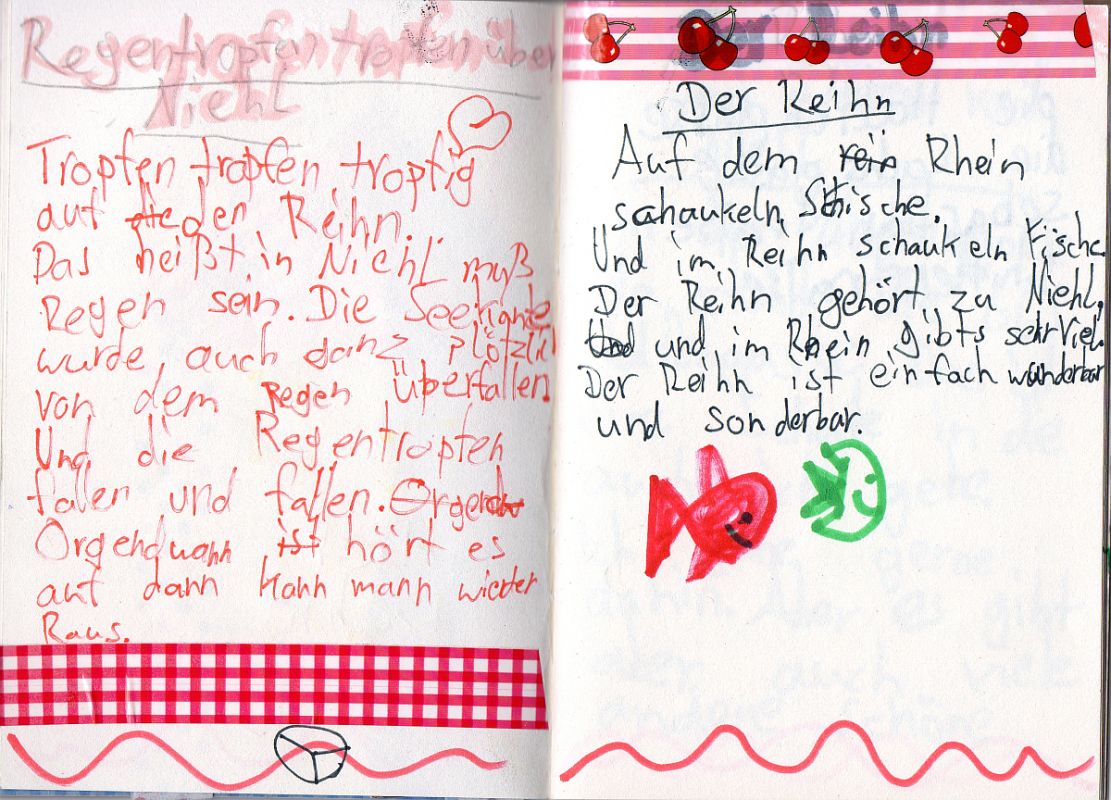 Regentropfen tropfen über
Niehl
Tropfen tropfen tropfig
auf die den Reihn.
Das heißt in Niehl muß
Regen sein. Die Seerichte
wurde auch ganz plötzlich
von dem Regen überfallen
Und die Regentropfen
fallen und fallen. Orgend
Orgendwann ist hört es
auf dann kann mann wieder
Raus.
Der Reihn
Auf dem rein Rhein
schaukeln Schische.
Und im Reihn schaukeln Fische.
Der Reihn gehört zu Niehl,
Und und im Rhein gibts sehr Viel.
Der Reihn ist einfach wunderbar
und sonderbar.